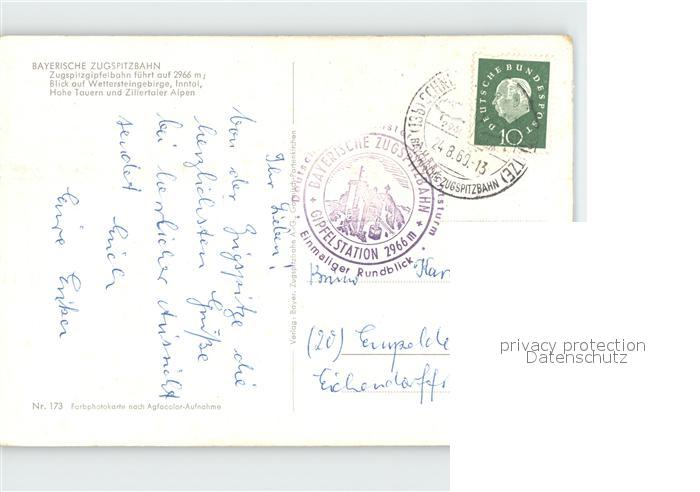 BAYERISCHE ZUGSPITZBAHN
Zugspitzgipfelbahn führt auf 2966 m;
Blick auf Wettersteingebirge, Inntal,
Hohe Tauern und Zillertaler Alpen
Ihr Lieben!
Von der Zugspitze die
herzlichsten Grüße
bei herrlicher Aussicht
sendet Euch
Eure
Nr. 173 Farbphotokarte nach Agfacolor-Aufnahme
Verlag: Bayer. Zugspitzbahn A.G. Garmisch-Partenkirchen
BAYERISCHE ZUGSPITZBAHN
GIPFELSTATION 2966 m
Einmaliger Rundblick
DEUTSCHE BUNDESPOST
10
(13b)
24.8.60.-13
ZUGSPITZBAHN
Bruno Kar
(20) Empelde
Eichendorffs
privacy protection
Datenschutz